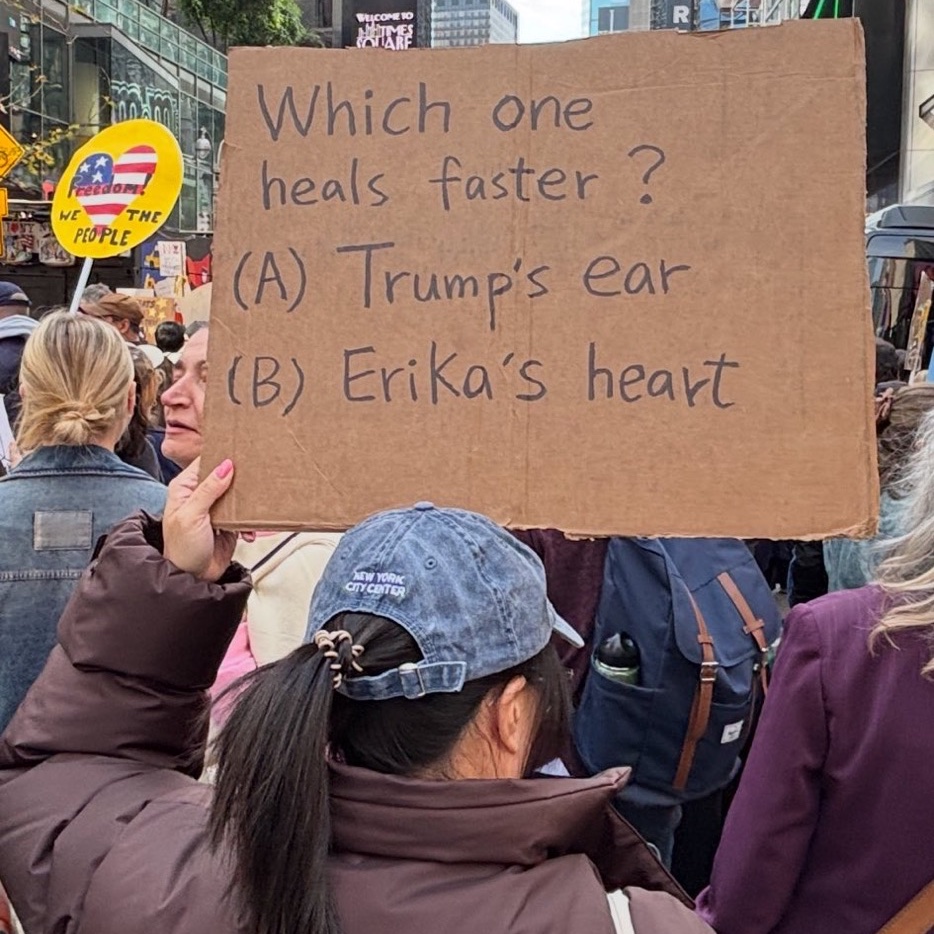 WELCOME TO
TIMES
SQUARE
R
Which one
heals faster ?
(A) Trump's ear
(B) Erika's heart
Freedom!
WE THE
PEOPLE
NEW YORK
CITY CENTER